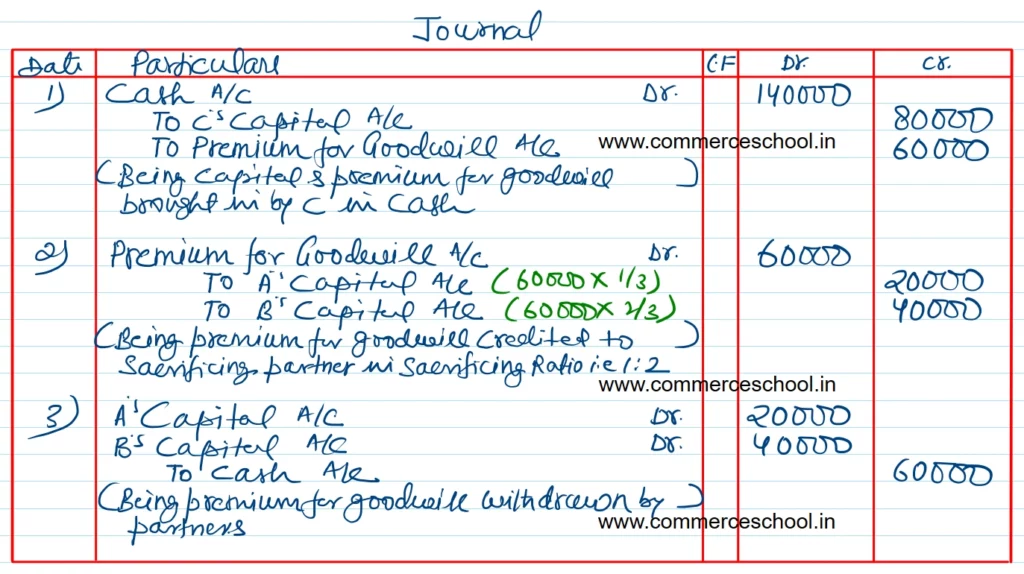 Journal
Date Particulars C.F Dr. Cr.
1) Cash A/C Dr. 140000
To C's Capital A/c 80000
To Premium for Goodwill A/c 60000
www.commerceschool.in
(Being Capital & premium for goodwill
brought in by C in Cash)
2) Premium for Goodwill A/c Dr. 60000
To A's Capital A/c (60000 X 1/3) 20000
To B's Capital A/c (60000 X 2/3) 40000
(Being premium for goodwill Credited to
Sacrificing partner in Sacrificing Ratio i.e 1:2)
www.commerceschool.in
3) A's Capital A/C Dr. 20000
B's Capital A/c Dr. 40000
To Cash A/c 60000
(Being premium for goodwill withdrawn by
partners)
www.commerceschool.in